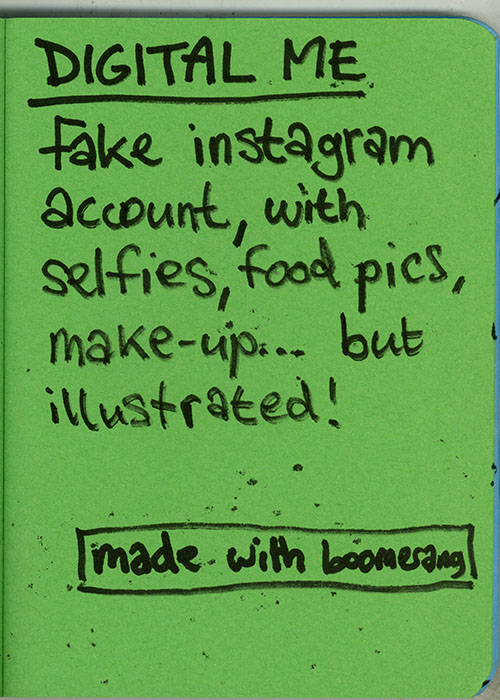 DIGITAL ME
fake instagram
account, with
selfies, food pics,
make-up... but
illustrated!
made with boomerang